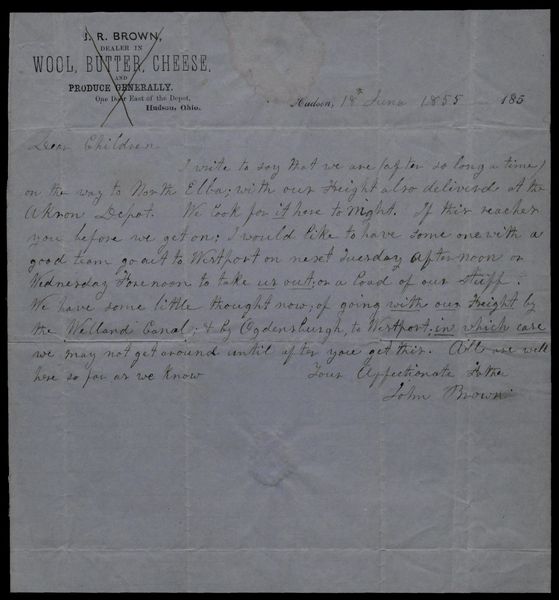 J. R. BROWN,
DEALER IN
WOOL, BUTTER, CHEESE,
AND
PRODUCE GENERALLY.
One Door East of the Depot,
Hudson, Ohio.
Hudson, 18th June 1855 185
Dear Children
I write to say that we are (after so long a time)
on the way to North Elba; with our Freight also delivered at the
Akron Depot. We look for it here to night. If this reaches
you before we get on; I would like to have some one with a
good team go out to Westport on next Tuesday afternoon or
Wednesday Forenoon to take us out; or a load of our stuff.
We have some little thought now, of going with our Freight by
the Welland Canal; & by Ogdensburgh, to Westport; in which case
we may not get around until after you get this. All are well
here so far as we know
Your Affectionate Father
John Brown